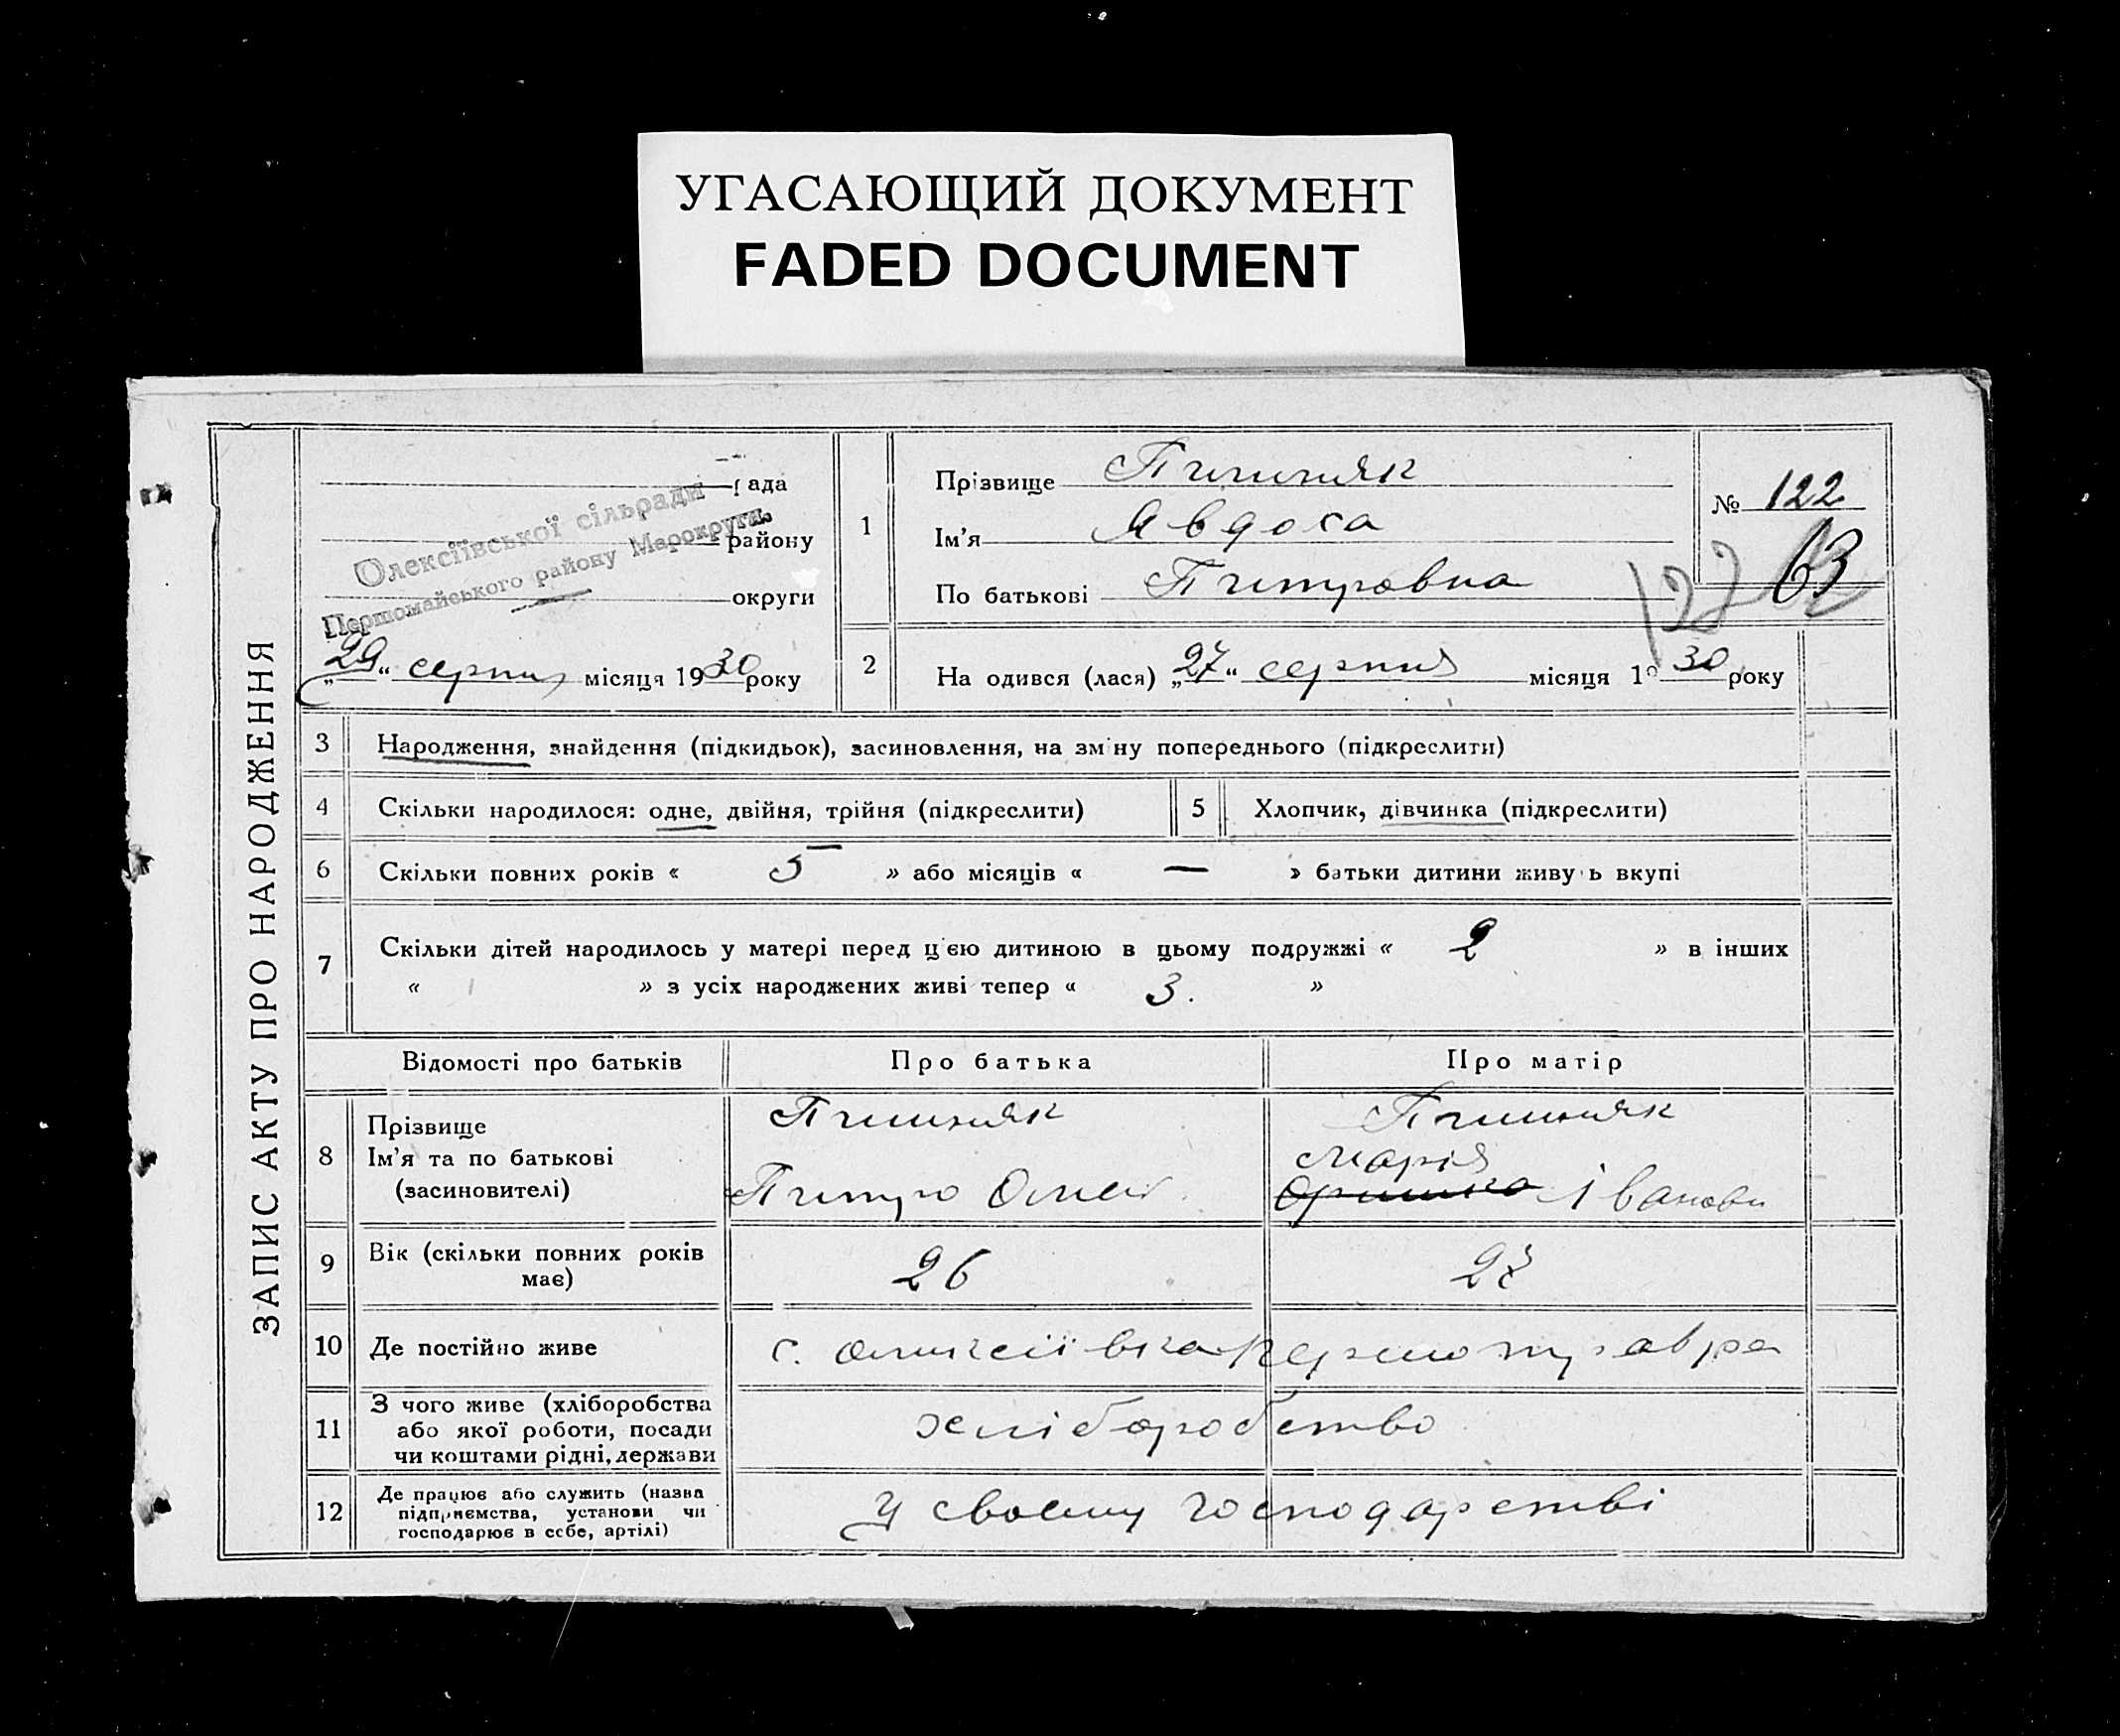 УГАСАЮЩИЙ ДОКУМЕНТ
FADED DOCUMENT
ЗАПИС АКТУ ПРО НАРОДЖЕННЯ
ада
району
округи
Олексіївської сільради
Першомайського району Марокруги.
„29“ серпня місяця 1930 року
1
Прізвище
Ім'я Явдоха
По батькові Питровна
№ 122
122
63
2
На одився (лася) „27“ серпня місяця 19 30 року
3 Народження, знайдення (підкидьок), засиновлення, на зміну попереднього (підкреслити)
4 Скільки народилося: одне, двійня, трійня (підкреслити)
5 Хлопчик, дівчинка (підкреслити)
6 Скільки повних років « 5 » або місяців « — » батьки дитини живуть вкупі
7 Скільки дітей народилось у матері перед цією дитиною в цьому подружжі « 2 » в інших
« » з усіх народжених живі тепер « 3. »
Відомості про батьків Про батька Про матір
8 Прізвище
Ім'я та по батькові
(засиновителі)
Питро
Марія
Іванови
9 Вік (скільки повних років
має)
26
10 Де постійно живе с.
11 З чого живе (хліборобства
або якої роботи, посади
чи коштами рідні, держави
хліборобство
12 Де працює або служить (назва
підприємства, установи чи
господарює в себе, артілі)
У своєму господарстві